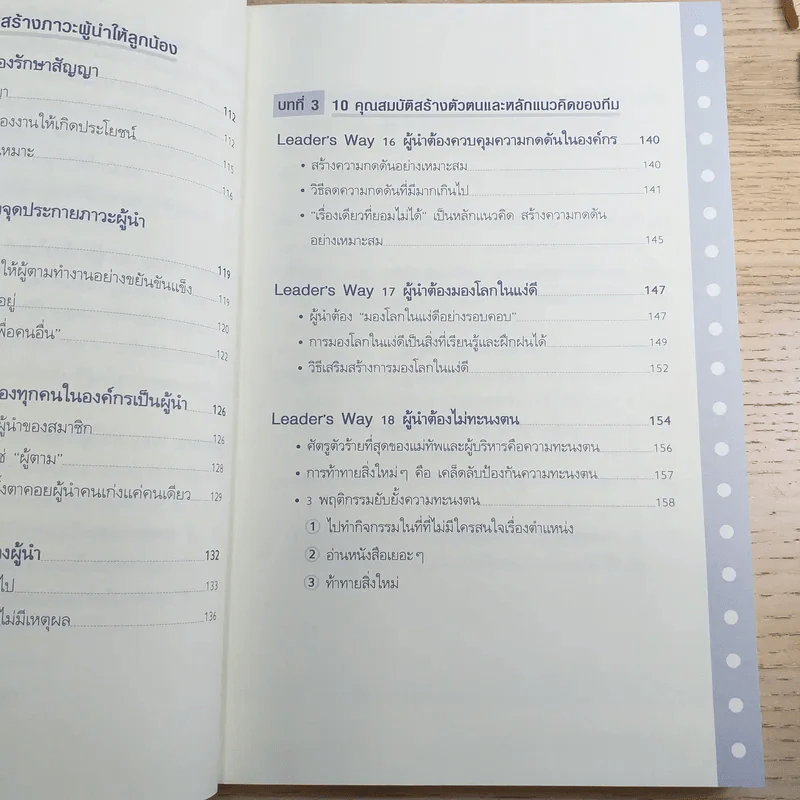 สร้างภาวะผู้นำให้ลูกน้อง
องรักษาสัญญา
ญา 112
องงานให้เกิดประโยชน์ 112
เหมาะ 115
116
จุดประกายภาวะผู้นำ
119
ให้ผู้ตามทำงานอย่างขยันขันแข็ง 119
อยู่ 120
พื่อคนอื่น" 122
องทุกคนในองค์กรเป็นผู้นำ 126
ผู้นำของสมาชิก 126
ช่ "ผู้ตาม" 128
ั้งตาคอยผู้นำคนเก่งแค่คนเดียว 129
งผู้นำ 132
ไป 133
ไม่มีเหตุผล 136
บทที่ 3 10 คุณสมบัติสร้างตัวตนและหลักแนวคิดของทีม
Leader's Way 16 ผู้นำต้องควบคุมความกดดันในองค์กร 140
• สร้างความกดดันอย่างเหมาะสม 140
• วิธีลดความกดดันที่มีมากเกินไป 141
• "เรื่องเดียวที่ยอมไม่ได้" เป็นหลักแนวคิด สร้างความกดดัน
อย่างเหมาะสม 145
Leader's Way 17 ผู้นำต้องมองโลกในแง่ดี 147
• ผู้นำต้อง "มองโลกในแง่ดีอย่างรอบคอบ" 147
• การมองโลกในแง่ดีเป็นสิ่งที่เรียนรู้และฝึกฝนได้ 149
• วิธีเสริมสร้างการมองโลกในแง่ดี 152
Leader's Way 18 ผู้นำต้องไม่ทะนงตน 154
• ศัตรูตัวร้ายที่สุดของแม่ทัพและผู้บริหารคือความทะนงตน 156
• การท้าทายสิ่งใหม่ๆ คือ เคล็ดลับป้องกันความทะนงตน 157
• 3 พฤติกรรมยับยั้งความทะนงตน 158
① ไปทำกิจกรรมในที่ที่ไม่มีใครสนใจเรื่องตำแหน่ง
② อ่านหนังสือเยอะๆ
③ ท้าทายสิ่งใหม่